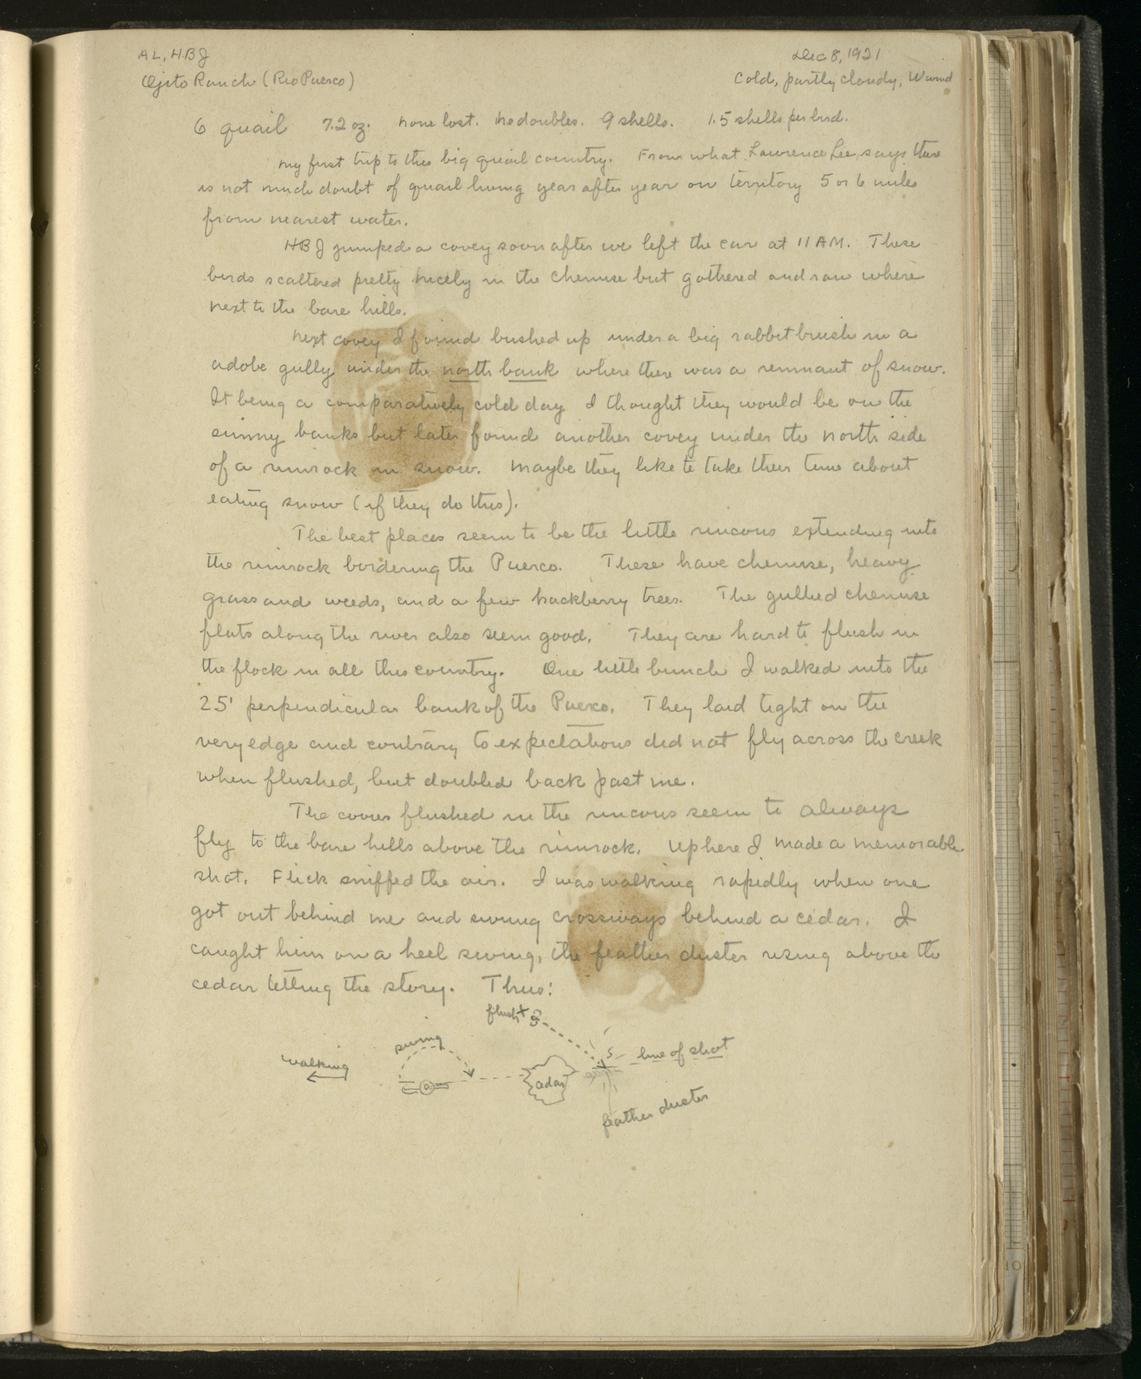 AL, HBJ
Dec 8, 1921
Ojito Ranch (Rio Puerco)
Cold, partly cloudy, Wind
6 quail 7.2 oz. none lost. no doubles. 9 shells. 1.5 shells per bird.
My first trip to this big quail country. From what Lawrence Lee says there
is not much doubt of quail living year after year on territory 5 or 6 miles
from nearest water.
HBJ jumped a covey soon after we left the car at 11 AM. These
birds scattered pretty nicely in the chemise but gathered and ran where
next to the bare hills.
Next covey I found bushed up under a big rabbitbrush in a
adobe gully under the north bank where there was a remnant of snow.
It being a comparatively cold day I thought they would be on the
sunny banks but later found another covey under the north side
of a rimrock in snow. Maybe they like to take their time about
eating snow (if they do this).
The best places seem to be the little rincons extending into
the rimrock bordering the Puerco. These have chemise, heavy
grass and weeds, and a few hackberry trees. The gullied chemise
flats along the river also seem good. They are hard to flush in
the flock in all this country. One little bunch I walked into the
25' perpendicular bank of the Puerco. They laid tight on the
very edge and contrary to expectations did not fly across the creek
when flushed, but doubled back past me.
The covies flushed in the rincons seem to always
fly to the bare hills above the rimrock. Up here I made a memorable
shot. Flick sniffed the air. I was walking rapidly when one
got out behind me and swung crossways behind a cedar. I
caught him on a heel swing, the feather duster rising above the
cedar telling the story. Thus:
flush
swing
walking
cedar
line of shot
feather duster